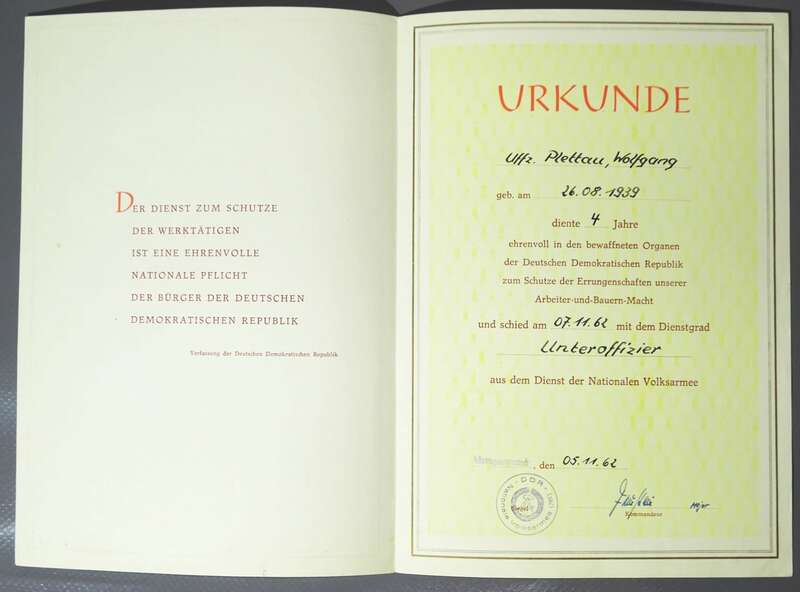 DER DIENST ZUM SCHUTZE
DER WERKTÄTIGEN
IST EINE EHRENVOLLE
NATIONALE PFLICHT
DER BÜRGER DER DEUTSCHEN
DEMOKRATISCHEN REPUBLIK
Verfassung der Deutschen Demokratischen Republik
URKUNDE
Uffz. Plettau, Wolfgang
geb. am 26.08.1939
diente 4 Jahre
ehrenvoll in den bewaffneten Organen
der Deutschen Demokratischen Republik
zum Schutze der Errungenschaften unserer
Arbeiter-und-Bauern-Macht
und schied am 07.11.62 mit dem Dienstgrad
Unteroffizier
aus dem Dienst der Nationalen Volksarmee
, den 05.11.62
DDR
Nationale Volksarmee
Major
Kommandeur